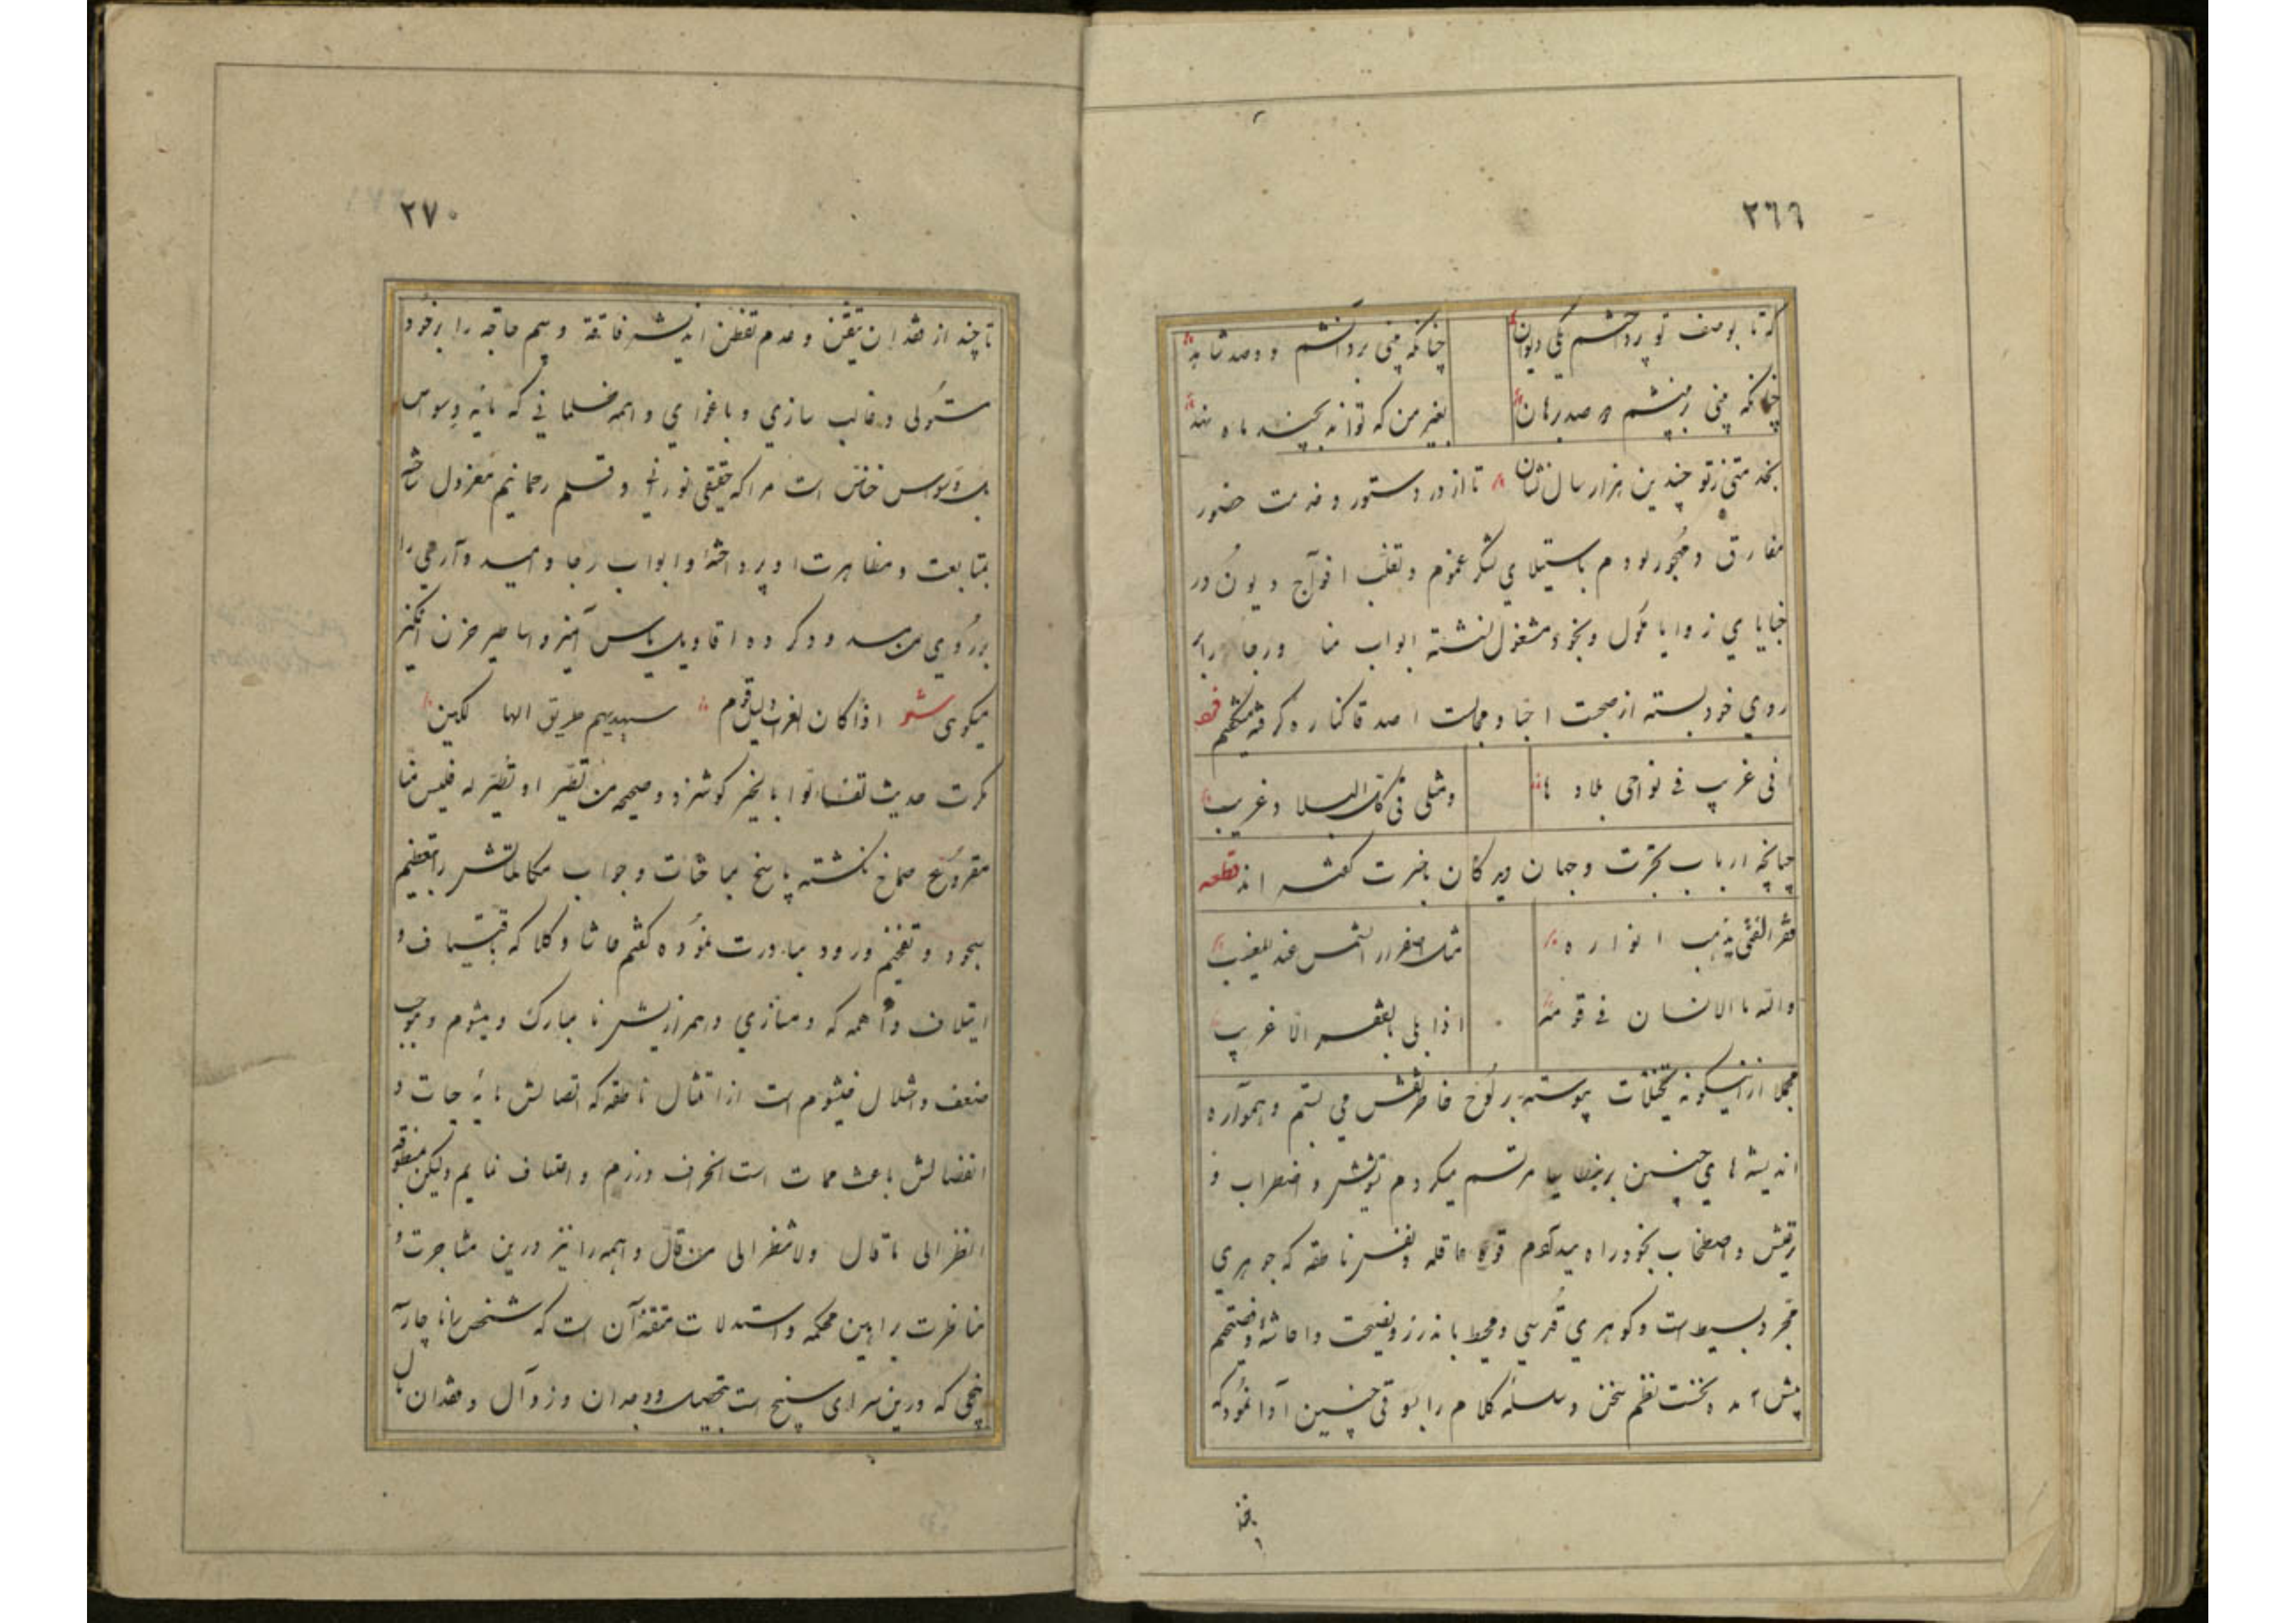 ٢٦٩
که تا بوصف تو پرداختم یکی دیوان
چنانکه پنی بر دانشم دو صد شاهد
چنانکه پنی ز پنشم دو صد برهان
بغیر من که تواند بچیند ماه
بخدمتی ز تو چندین هزار سال نشان تا از در دستور و خدمت حضور
مفارق و مهجور بودم باستیلای لشکر غموم و تغلب افواج دیون در
خبایای زوایا خمول و بخود مشغول نشسته ابواب منا ورجا برابر
روی خود بسته از صحبت احبا و مجالست اصدقا کناره گرفته میگفتم
فی غریب فی نواحی بلادها
ومثلی فی تلک البلاد غریب
چنانچه ارباب تجربت و جهان دیدگان باخبرت گفته اند قطعه
فقر الفتی یذهب انواره
مثل اصفرار الشمس عند المغیب
والله ما الانسان فی قومه
اذا بلی بالفقر الا غریب
مجملا ازاینگونه تخیلات پیوسته بر لوح خاطر نقش می بستم و همواره
اندیشه های چنین بر مرتسم میکردم تشویش و اضطراب و
و اصطخاب بخود راه میدادم قوه عاقله و نفس ناطقه که جوهری
مجرد بسیط است و گوهری قدسی و محیط باندرز و نصیحت
پیش آمد و نخست نظم سخن و سلسله کلام را بسوقی چنین آدا نمود که
٢٧٠
تا چند از فقدان تیقن و عدم تفطن اندیشه فاتقه و وهم را بر خود
مستولی و غالب سازی و باغوای واهمه ظلمانی که مایه وسواس
خناس است مرا که حقیقتی نورانی و رحمانیم معزول ساخته
بمتابعت و مظاهرت او پرداخته و ابواب رجا و امید و آرمی را
بر روی من سد و دگر ده اقاویل یاس آمیز و اساطیر حزن انگیز
میگوی شعر اذا کان الغراب دلیل قوم سیهدیهم طریق الهالکین
مکرت حدیث تفئالوا بالخیر گوشزد و صحیحه من تطیر او تطیر له فلیس منا
مقروع صماخ نگشته پاسخ مباحثات و جواب مکالماتش را بتعظیم
سجود و تفخیم ورود مبادرت نموده گفتم حاشا و کلا که باقتیاف و
ایتلاف واهمه که دمسازی و همرازیش نا مبارک و میشوم و موجب
ضعف و اختلال است از امتثال ناطقه که اتصالش مایه حیات و
انفصالش باعث ممات است انحراف ورزم و اعتساف نمایم ولیکن بمنطوقه
انظر الی ما قال ولا تنظر الی من قال واهمه را نیز درین مشاجرت و
مناظرت براهین محکمه و استدلالات متقنه آن است که شخص را ناچار
که درین سرای سپنج است بتحصیل و وجدان و زوال و فقدان